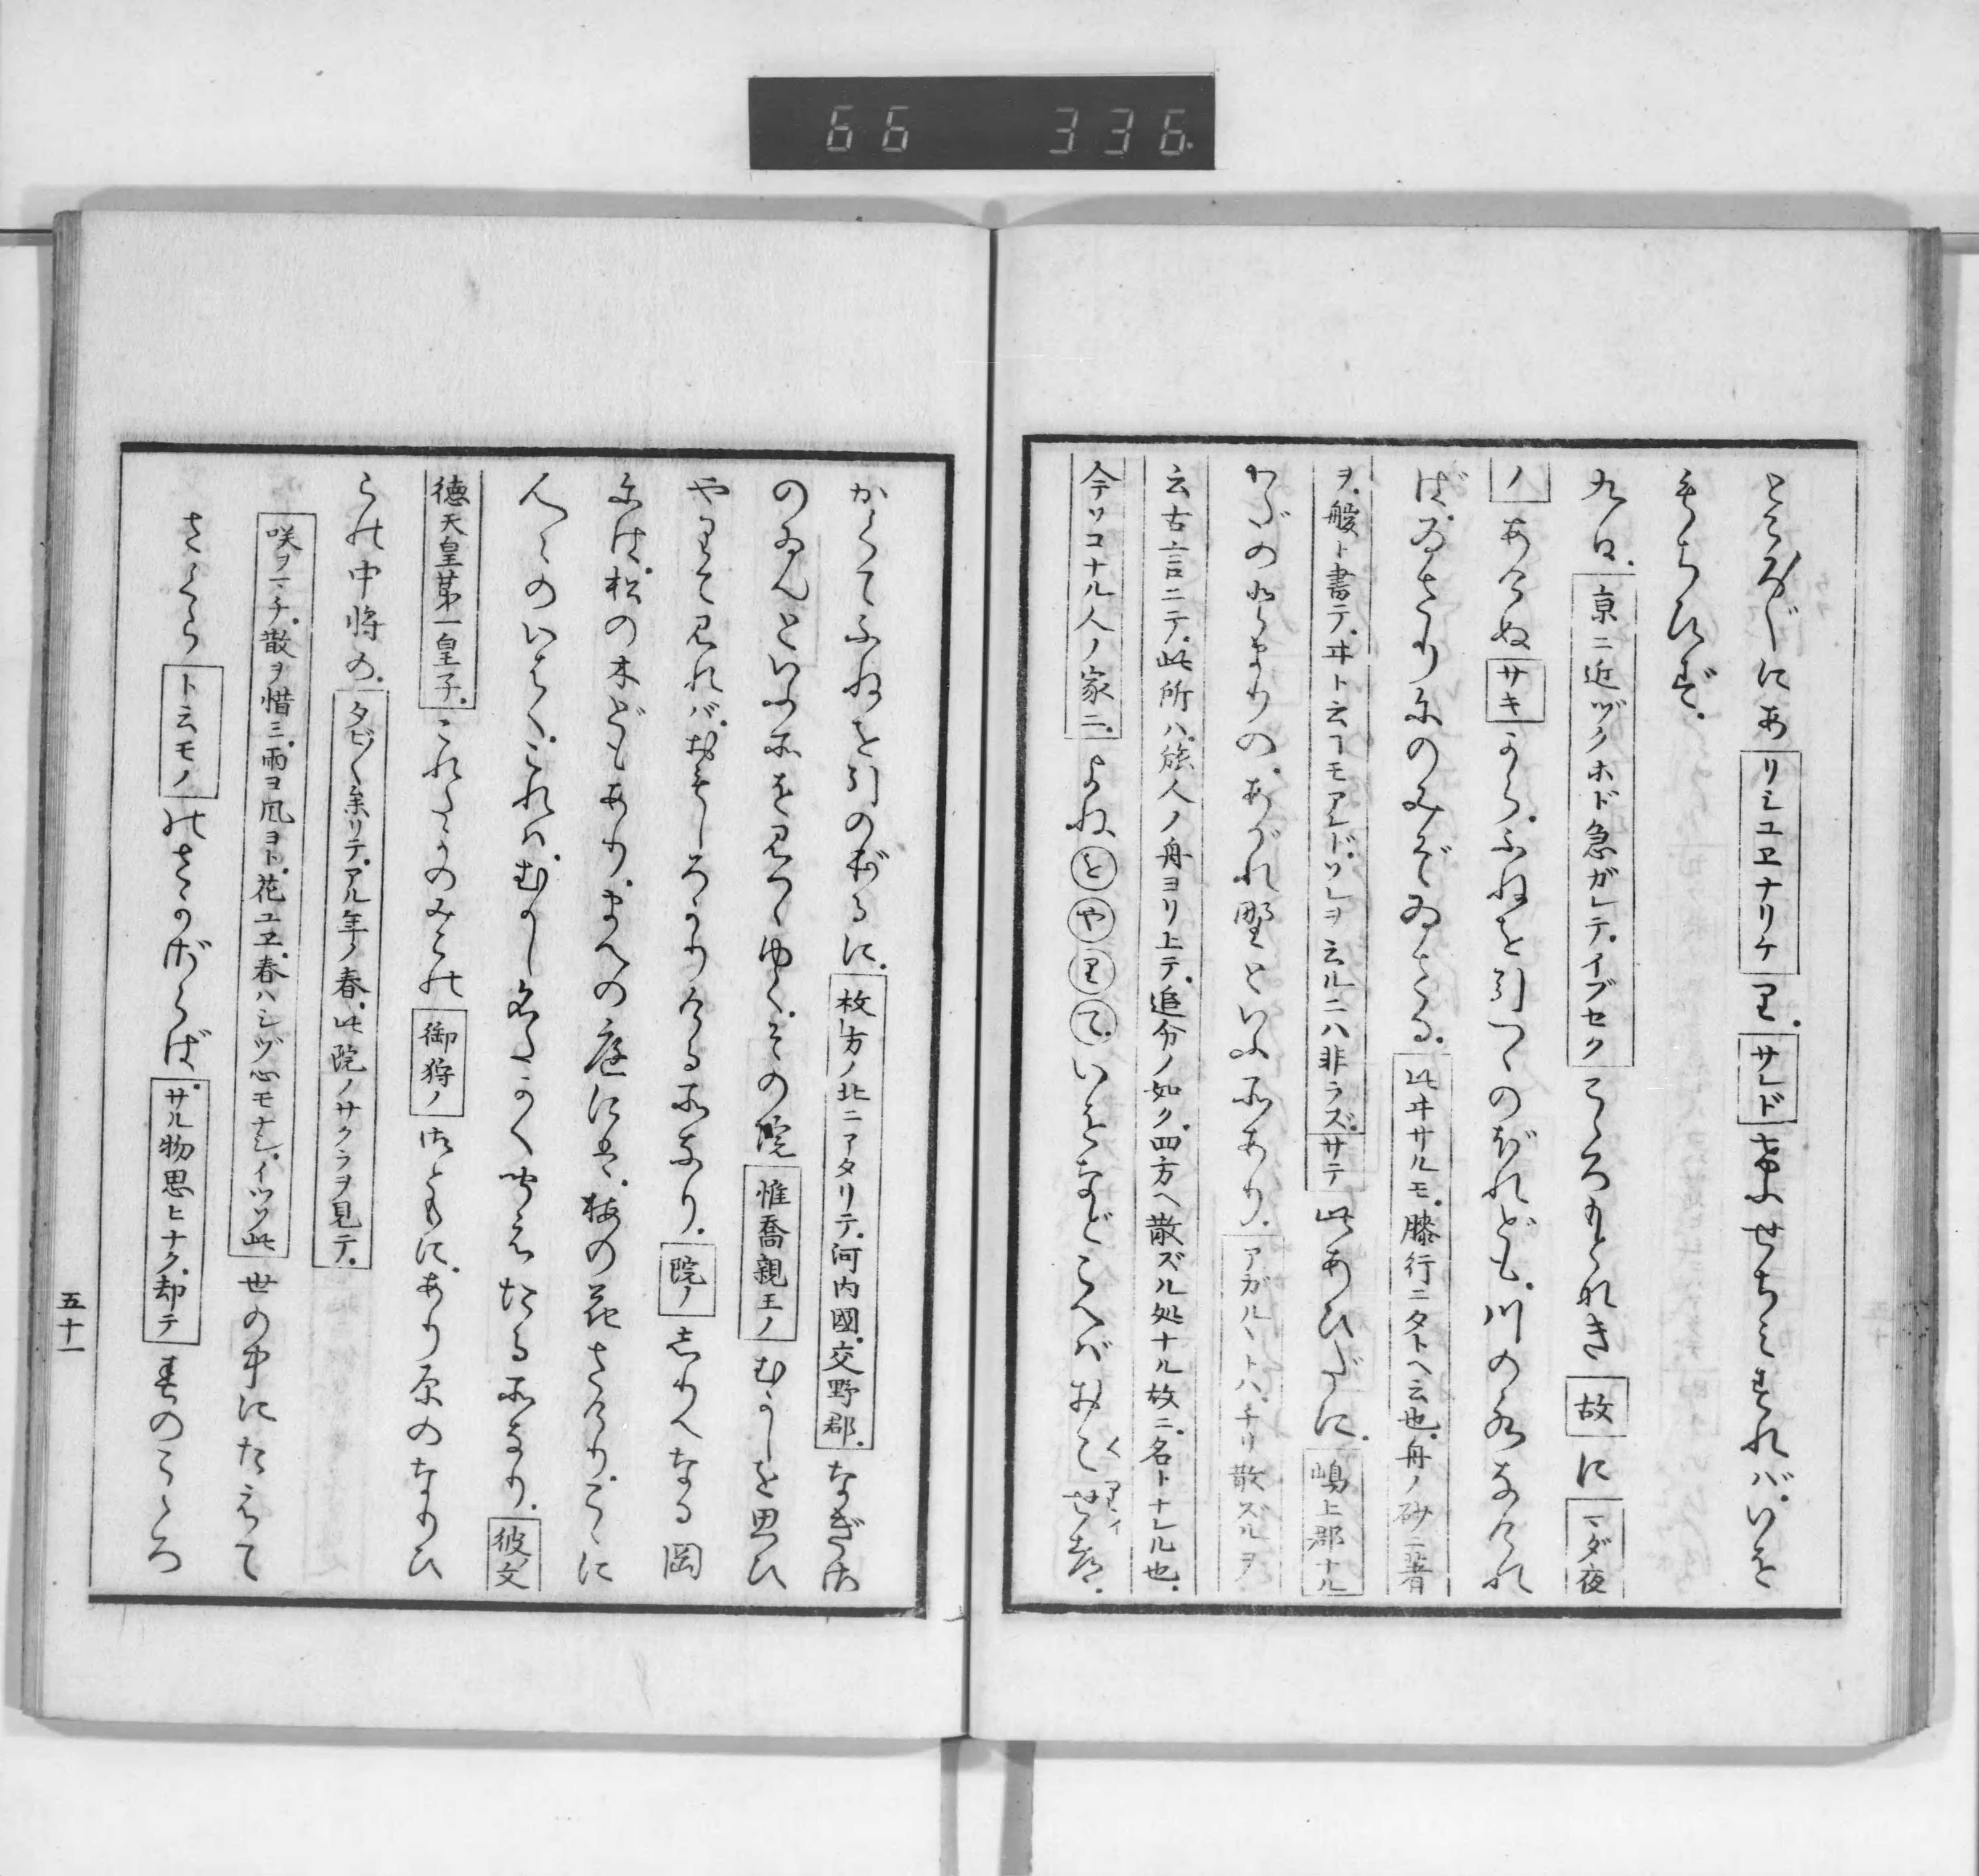 ところ〴〵にあリシユヱナリケり。サレドけふせちみすれバ。いを
もちひず。
九日。京ニ近ヅクホド急ガレテ。イブセクこゝろもとなき故にマダ夜
ノあけぬサキから。ふねを引つゝのぼれども。川の水なけれ
ば。ゐざりにのみぞゐざる。此ヰサルモ。膝行ニタトヘ云也。舟ノ砂ニ著
ヲ。艘ト書テ。ヰト云フモアレド。ソレヲ云ルニハ非ラズ。サテ此あひだに。嶋上郡ナル
わだのとまりの。あがれ野といふ所あり。アガルヽトハ。チリ散ズルヲ
云古言ニテ。此所ハ。旅人ノ舟ヨリ上テ。追分ノ如ク。四方ヘ散ズル処ナル故ニ。名トナレル也。
今ソコナル人ノ家ニ。よねをやりて。いをなどこへバおこせつ。
くりイ
かくてふねを引のぼるに。枚方ノ北ニアタリテ。河内國。交野郡。なぎさ
のゐんといふ所を見つゝゆく。その院惟喬親王ノむかしを思ひ
やりて見れバ。おもしろかりける所なり。院ノしりへなる岡
には。松の木どもあり。まへの庭には。梅の花さけり。こゝに
人〻のいはく。これハ。むかし名たかく聞えたる所なり。彼文
徳天皇第一皇子。これたかのみこの御狩ノ御ともに。あり原のなりひ
らの中将の。タビ〳〵参リテ。アル年ノ春。此院ノサクラヲ見テ。
咲ヲマチ。散ヲ惜ミ。雨ヨ風ヨト。花ユヱ。春ハシヅ心モナシ。イツソ此世の中にたえて
さくらト云モノのさかざらば。サル物思ヒナク。却テ春のこゝろ
五十一
66 336